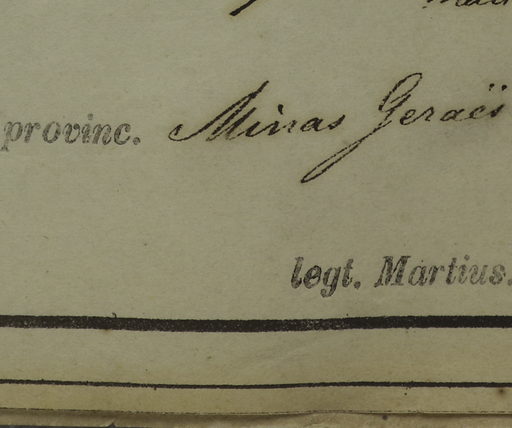 provinc. Minas Geraës
legt. Martius.